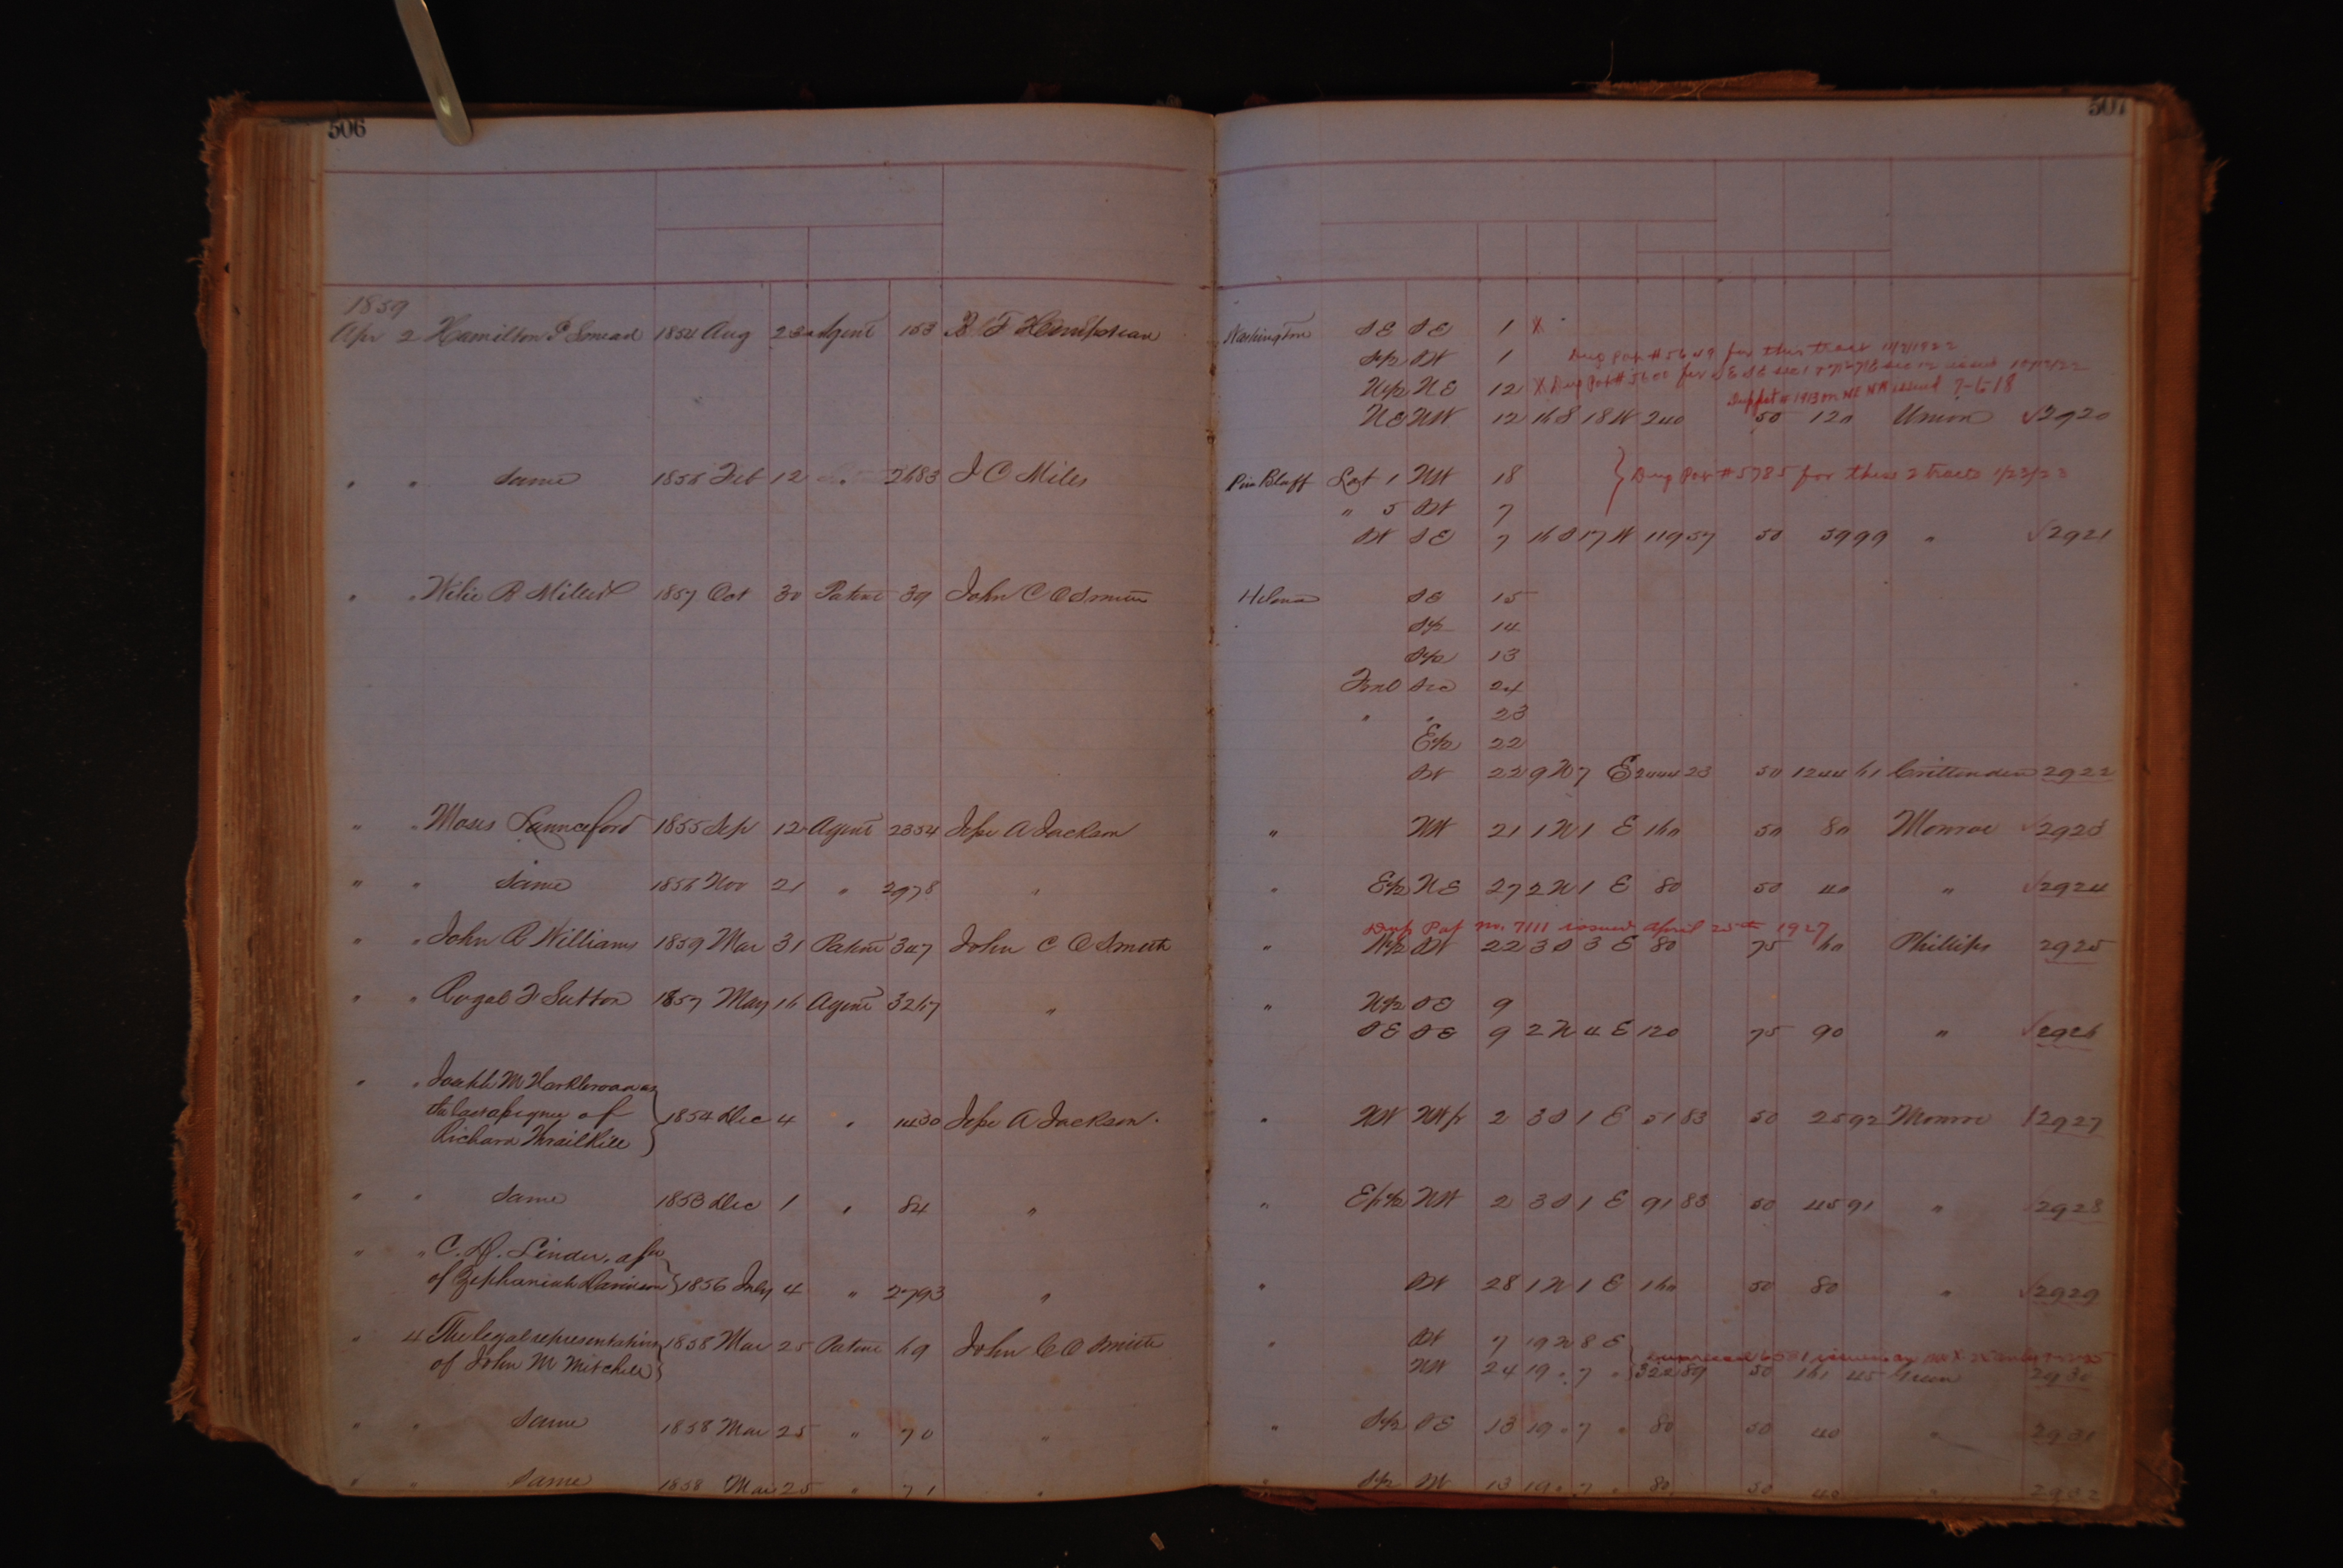 506
507
1859
Apr 2 Hamilton P 1854 Aug 23 Agent 163 B F Hempstead Washington SE SE 1 X
S½ SW 1 Dup Pat # 5649 for this tract 11/2/1922
N½ NE 12 X Dup Pat #
Dup pat # 1913 on NE NW issued 7-6-18
NE NW 12 16 S 18 W 240 50 120 Union √2920
" " Same 1856 Feb 12 " 2683 J C Miles Pine Bluff Lot 1 NW 18 } Dup Pat # 5785 for these 2 tracts 1/23/23
" 5 SW 7
SW SE 7 16 S 17 W 119 57 50 59 99 " √2921
" " Wilie R 1857 Oct 30 Patent 39 John C O Smith Helena SE 15
S½ 14
S½ 13
Frac Sec 24
" " 23
E½ 22
SW 22 9 N 7 E 50 1244 61 Crittenden 2922
" " Moses Lunceford 1855 Sep 12 Agent 2354 Jesse A Jackson " NW 21 1 N 1 E 160 50 80 Monroe √2923
" " Same 1856 Nov 21 " 2978 " " E½ NE 27 2 N 1 E 80 50 40 " √2924
Dup Pat No. 7111 issued April 25th 1927
" " John R Williams 1859 Mar 31 Patent 347 John C O Smith " W½ SW 22 3 S 3 E 80 75 60 Phillips 2925
" " Royal F Sutton 1857 May 16 Agent 3267 " " N½ SE 9
SE SE 9 2 N 4 E 120 75 90 " √2926
" " M
of } 1854 Dec 4 " 1430 Jesse A Jackson. " NW 2 3 S 1 E 51 83 50 25 92 Monroe 2927
Richard Thrailkill
" " Same 1853 Dec 1 " 84 " " NW 2 3 S 1 E 91 83 50 45 91 " 2928
" " C. Linder,
of Zephaniah Davidson } 1856 July 4 " 2793 " " SW 28 1 N 1 E 160 50 80 " √2929
" 4 The legal representatives } 1858 Mar 25 Patent 69 John C O Smith " SW 7 19 N 8 E
of John M Mitchell NW 24 19 " 7 " 322 89 50 161 45 Green 2930
" " Same 1858 Mar 25 " 70 " " S½ SE 13 19 " 7 " 80 50 40 " 2931
" " Same 1858 Mar 25 " 71 " " S½ SW 13 19 " 7 " 80 50 40 " 2932